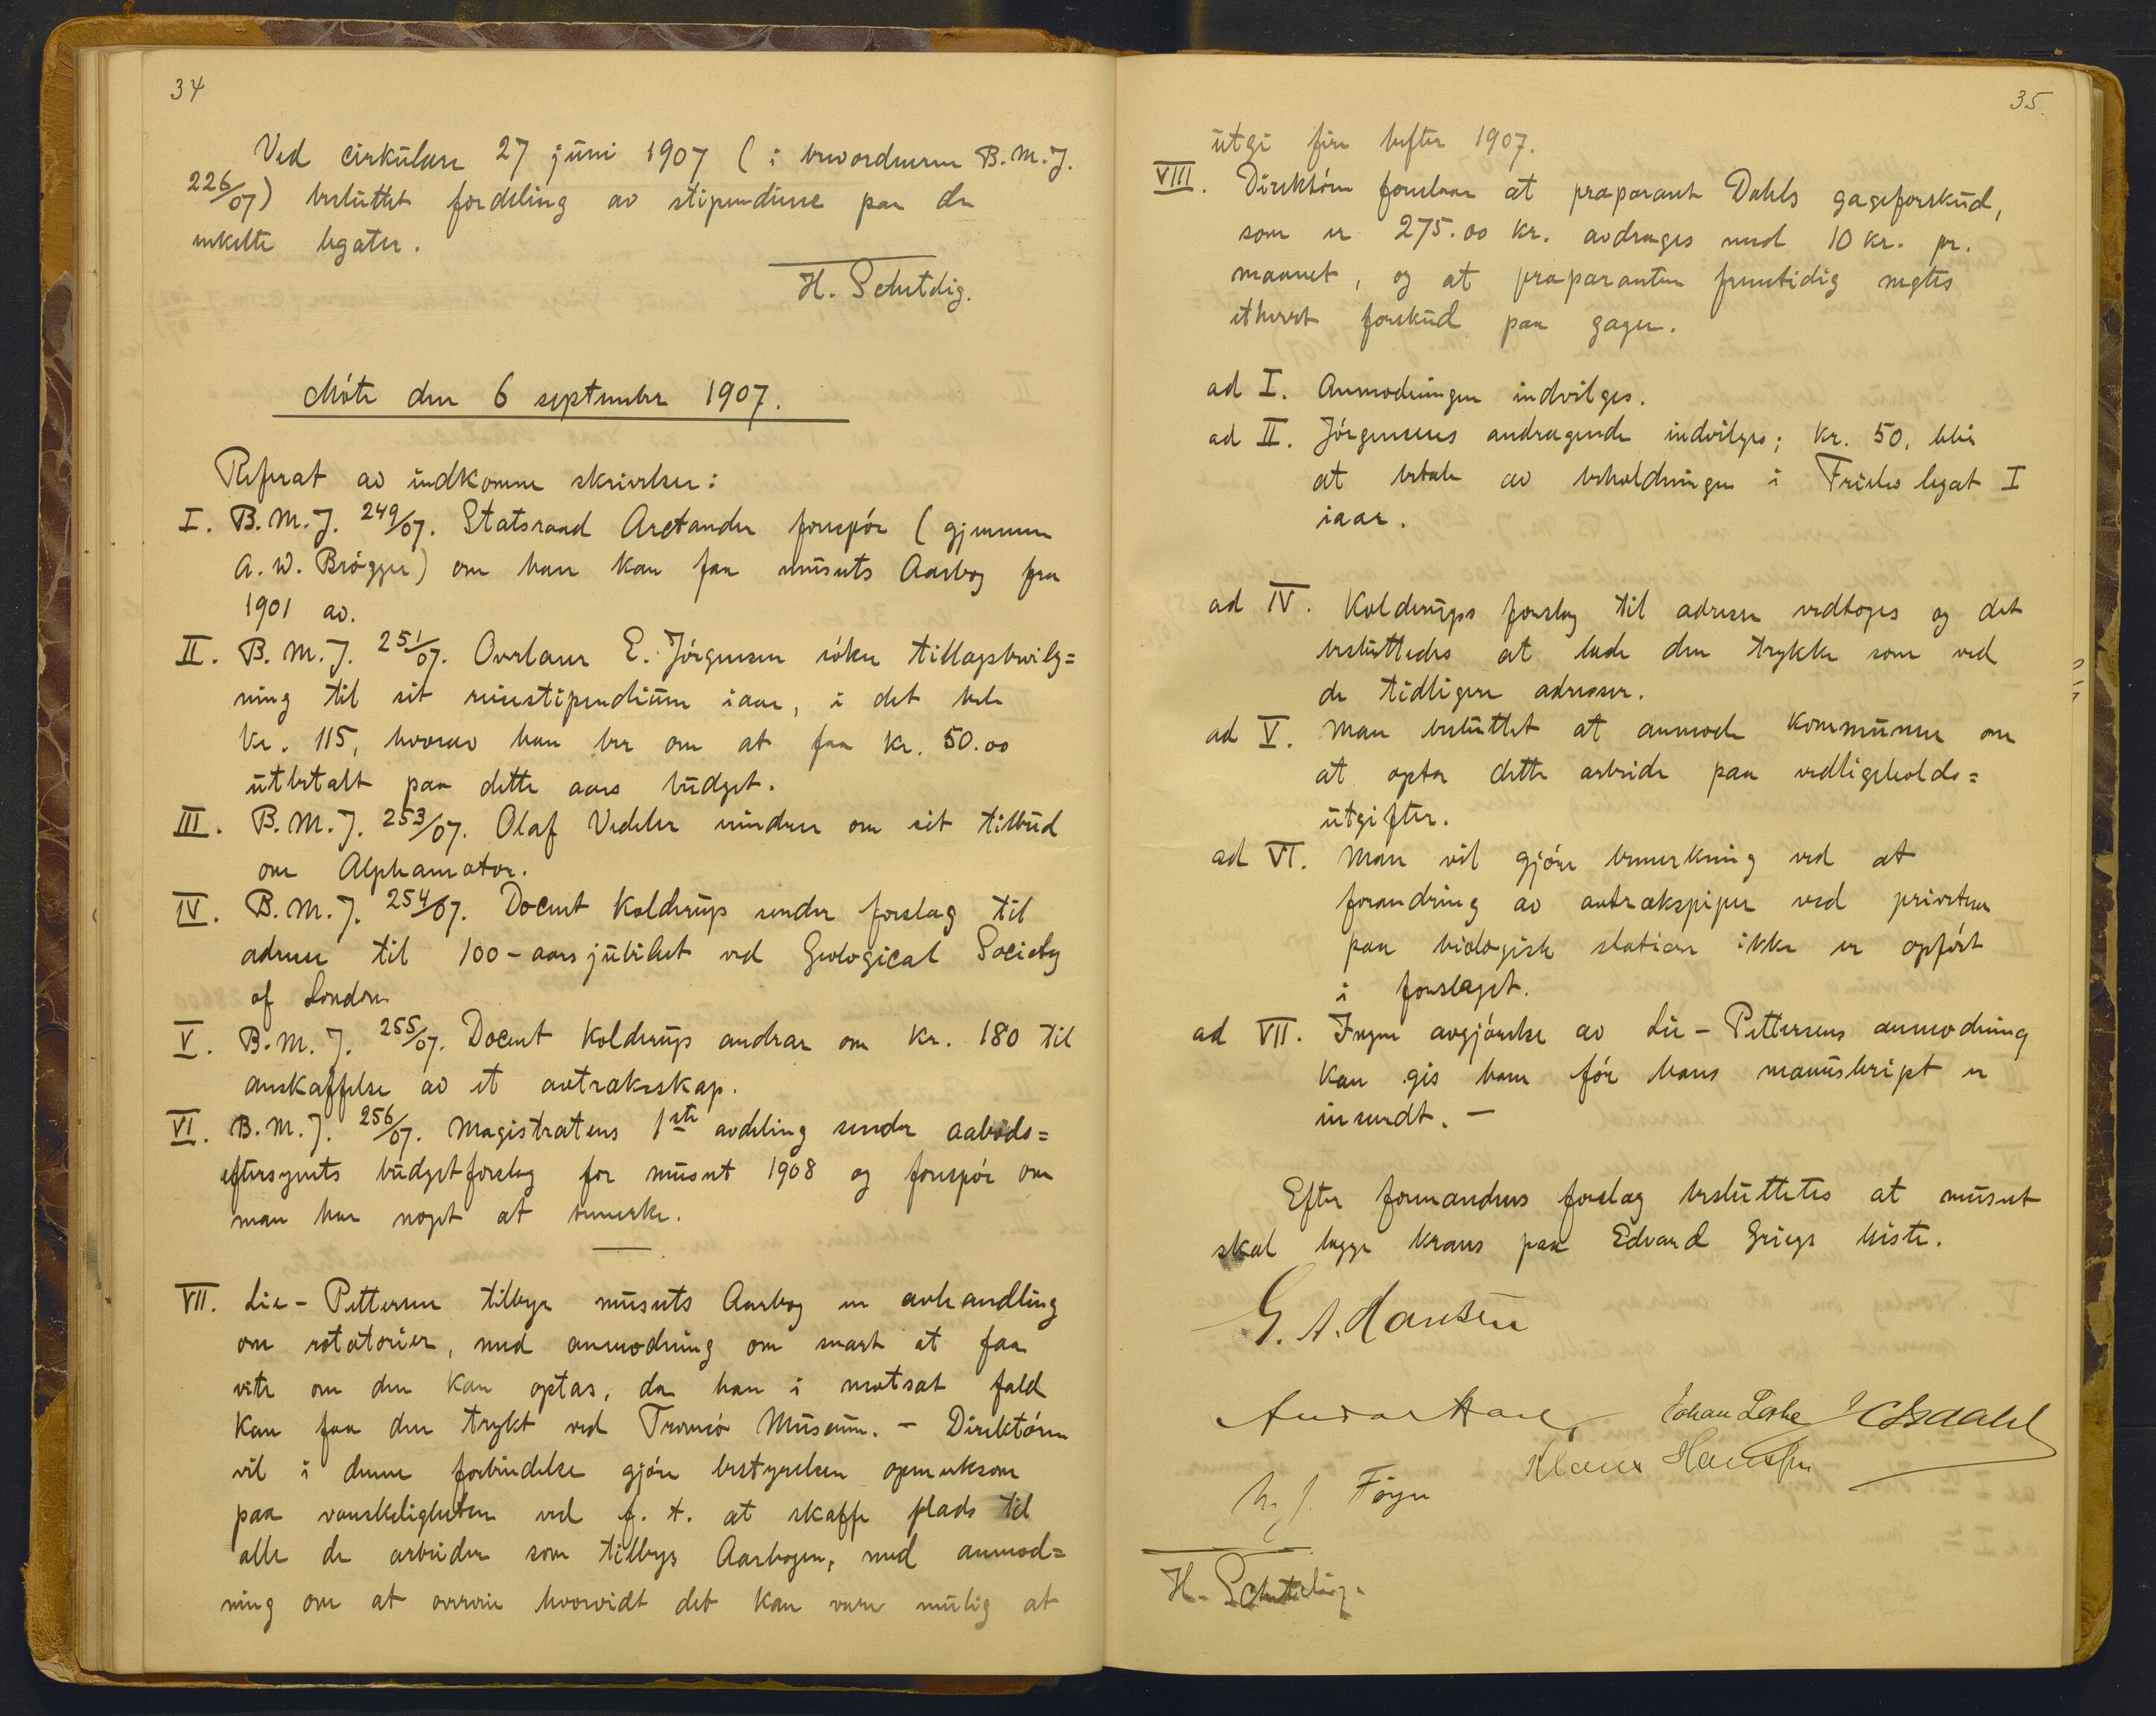 34
Ved cirkulære 27 juni 1907 (i brevordneren B.M.J.
226/07) besluttet fordeling av stipendiene paa de
enkelte legater.
H. Schetelig.
Møte den 6 september 1907.
Referat av indkomne skrivelser:
I. B.M.J. 249/07. Statsraad Arctander forespør (gjennem
A.W. Brøgger) om han kan faa museets Aarbog fra
1901 av.
II. B.M.J. 251/07. Overlærer E. Jørgensen søker tillægsbevilg=
ning til sit reisestipendium iaar, i det hele
kr. 115, hvorav han ber om at faa kr. 50.00
utbetalt paa dette aars budget.
III. B.M.J. 253/07. Olaf Vedeler minder om sit tilbud
om Alphamator.
IV. B.M.J. 254/07. Docent Kolderup sender forslag til
adresse til 100-aarsjubilæet ved Geological Society
of London
V. B.M.J. 255/07. Docent Kolderup andrar om kr. 180 til
anskaffelse av et avtræksskap.
VI. B.M.J. 256/07. Magistratens 1ste avdeling sender aabods=
eftersynets budgetforslag for museet 1908 og forespør om
man har noget at bemerke.
VII. Lie-Pettersen tilbyr museets Aarbog en avhandling
om rotatorier, med anmodning om snart at faa
vite om den kan optas, da han i motsat fald
kan faa den trykt ved Tromsø Museum. - Direktøren
vil i denne forbindelse gjøre bestyrelsen opmerksom
paa vanskeligheten ved f. t. at skaffe plads til
alle de arbeider som tilbys Aarbogen, med anmod=
ning om at overveie hvorvidt det kan være mulig at
35.
utgi fire hefter 1907.
VIII. Direktøren foreslaar at præparant Dahls gageforskud,
som er 275.00 kr. avdrages med 10 kr. pr.
maanet, og at præparanten fremtidig negtes
ethvert forskud paa gagen.
ad I. Anmodningen indvilges.
ad II. Jørgensens andragende indvilges; kr. 50. blir
at betale av beholdningen i Frieles legat I
iaar.
ad IV. Kolderups forslag til adresse vedtoges og det
besluttedes at lade den trykke som ved
de tidligere adresser.
ad V. Man besluttet at anmode kommunen om
at opta dette arbeide paa vedligeholds=
utgifter.
ad VI. Man vil gjøre bemerkning ved at
forandring av avtrækspipen ved priveterne
paa biologisk station ikke er opført
i forslaget.
ad VII. Ingen avgjørelse av Lie-Pettersens anmodning
kan gis ham før hans manuskript er
insendt. -
Efter formandens forslag besluttetes at museet
skal lægge krans paa Edvard Griegs kiste.
G. A. Hansen
Johan Lothe
Klaus Hanssen
Føyn
H. Schetelig.